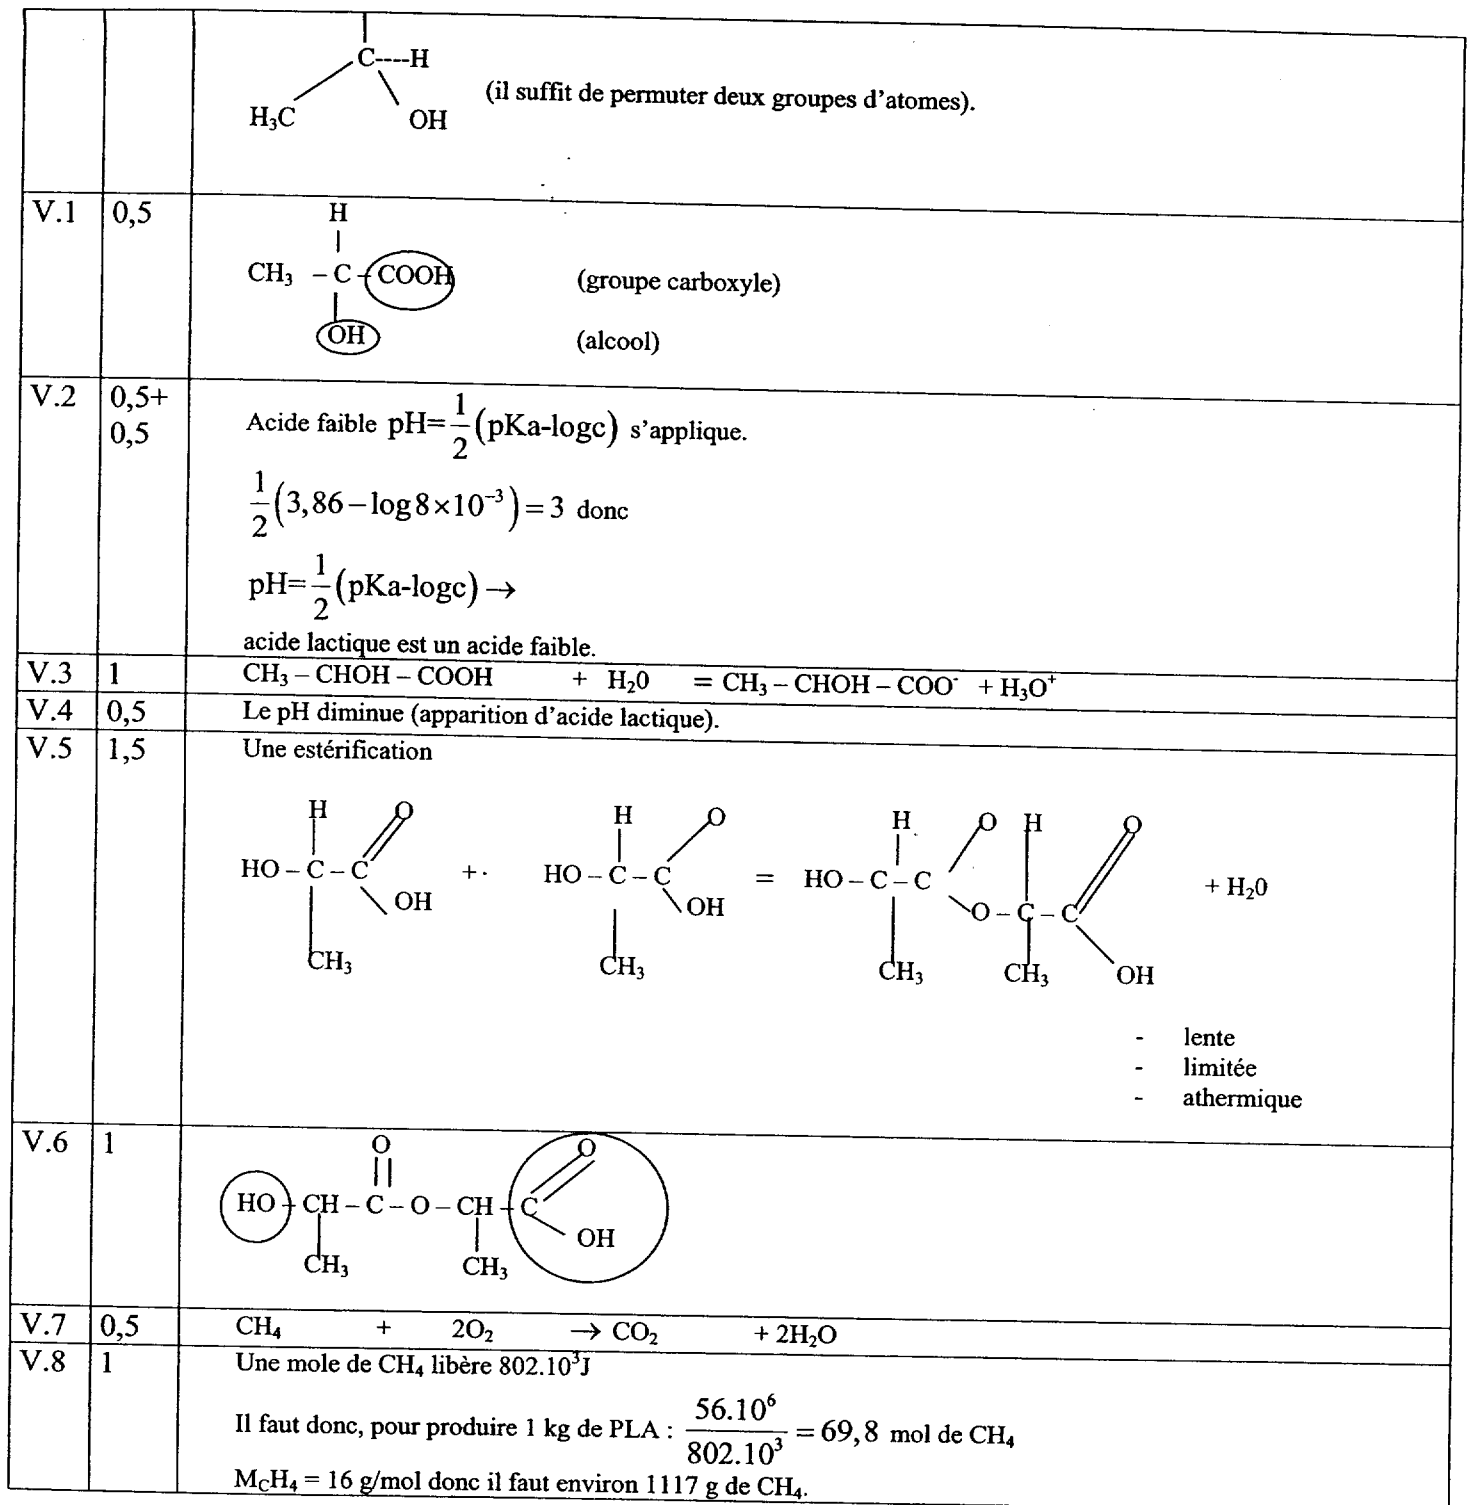 C----H
(il suffit de permuter deux groupes d'atomes).
H₃C OH
V.1 0,5 H
CH₃ – C – COOH (groupe carboxyle)
OH (alcool)
V.2 0,5+
0,5
Acide faible pH=1/2(pKa-logc) s'applique.
1/2(3,86–log8×10⁻³)=3 donc
pH=1/2(pKa-logc)→
acide lactique est un acide faible.
V.3 1 CH₃ – CHOH – COOH + H₂0 = CH₃ – CHOH – COO⁻ + H₃O⁺
V.4 0,5 Le pH diminue (apparition d'acide lactique).
V.5 1,5 Une estérification
H O H O H O H O
HO – C – C +· HO – C – C = HO – C – C + H₂0
OH OH O – C – C
CH₃ CH₃ CH₃ CH₃ OH
- lente
- limitée
- athermique
V.6 1 O O
HO – CH – C – O – CH – C
OH
CH₃ CH₃
V.7 0,5 CH₄ + 2O₂ → CO₂ + 2H₂O
V.8 1 Une mole de CH₄ libère 802.10³J
Il faut donc, pour produire 1 kg de PLA : 56.10⁶/802.10³ = 69,8 mol de CH₄
M_CH₄ = 16 g/mol donc il faut environ 1117 g de CH₄.